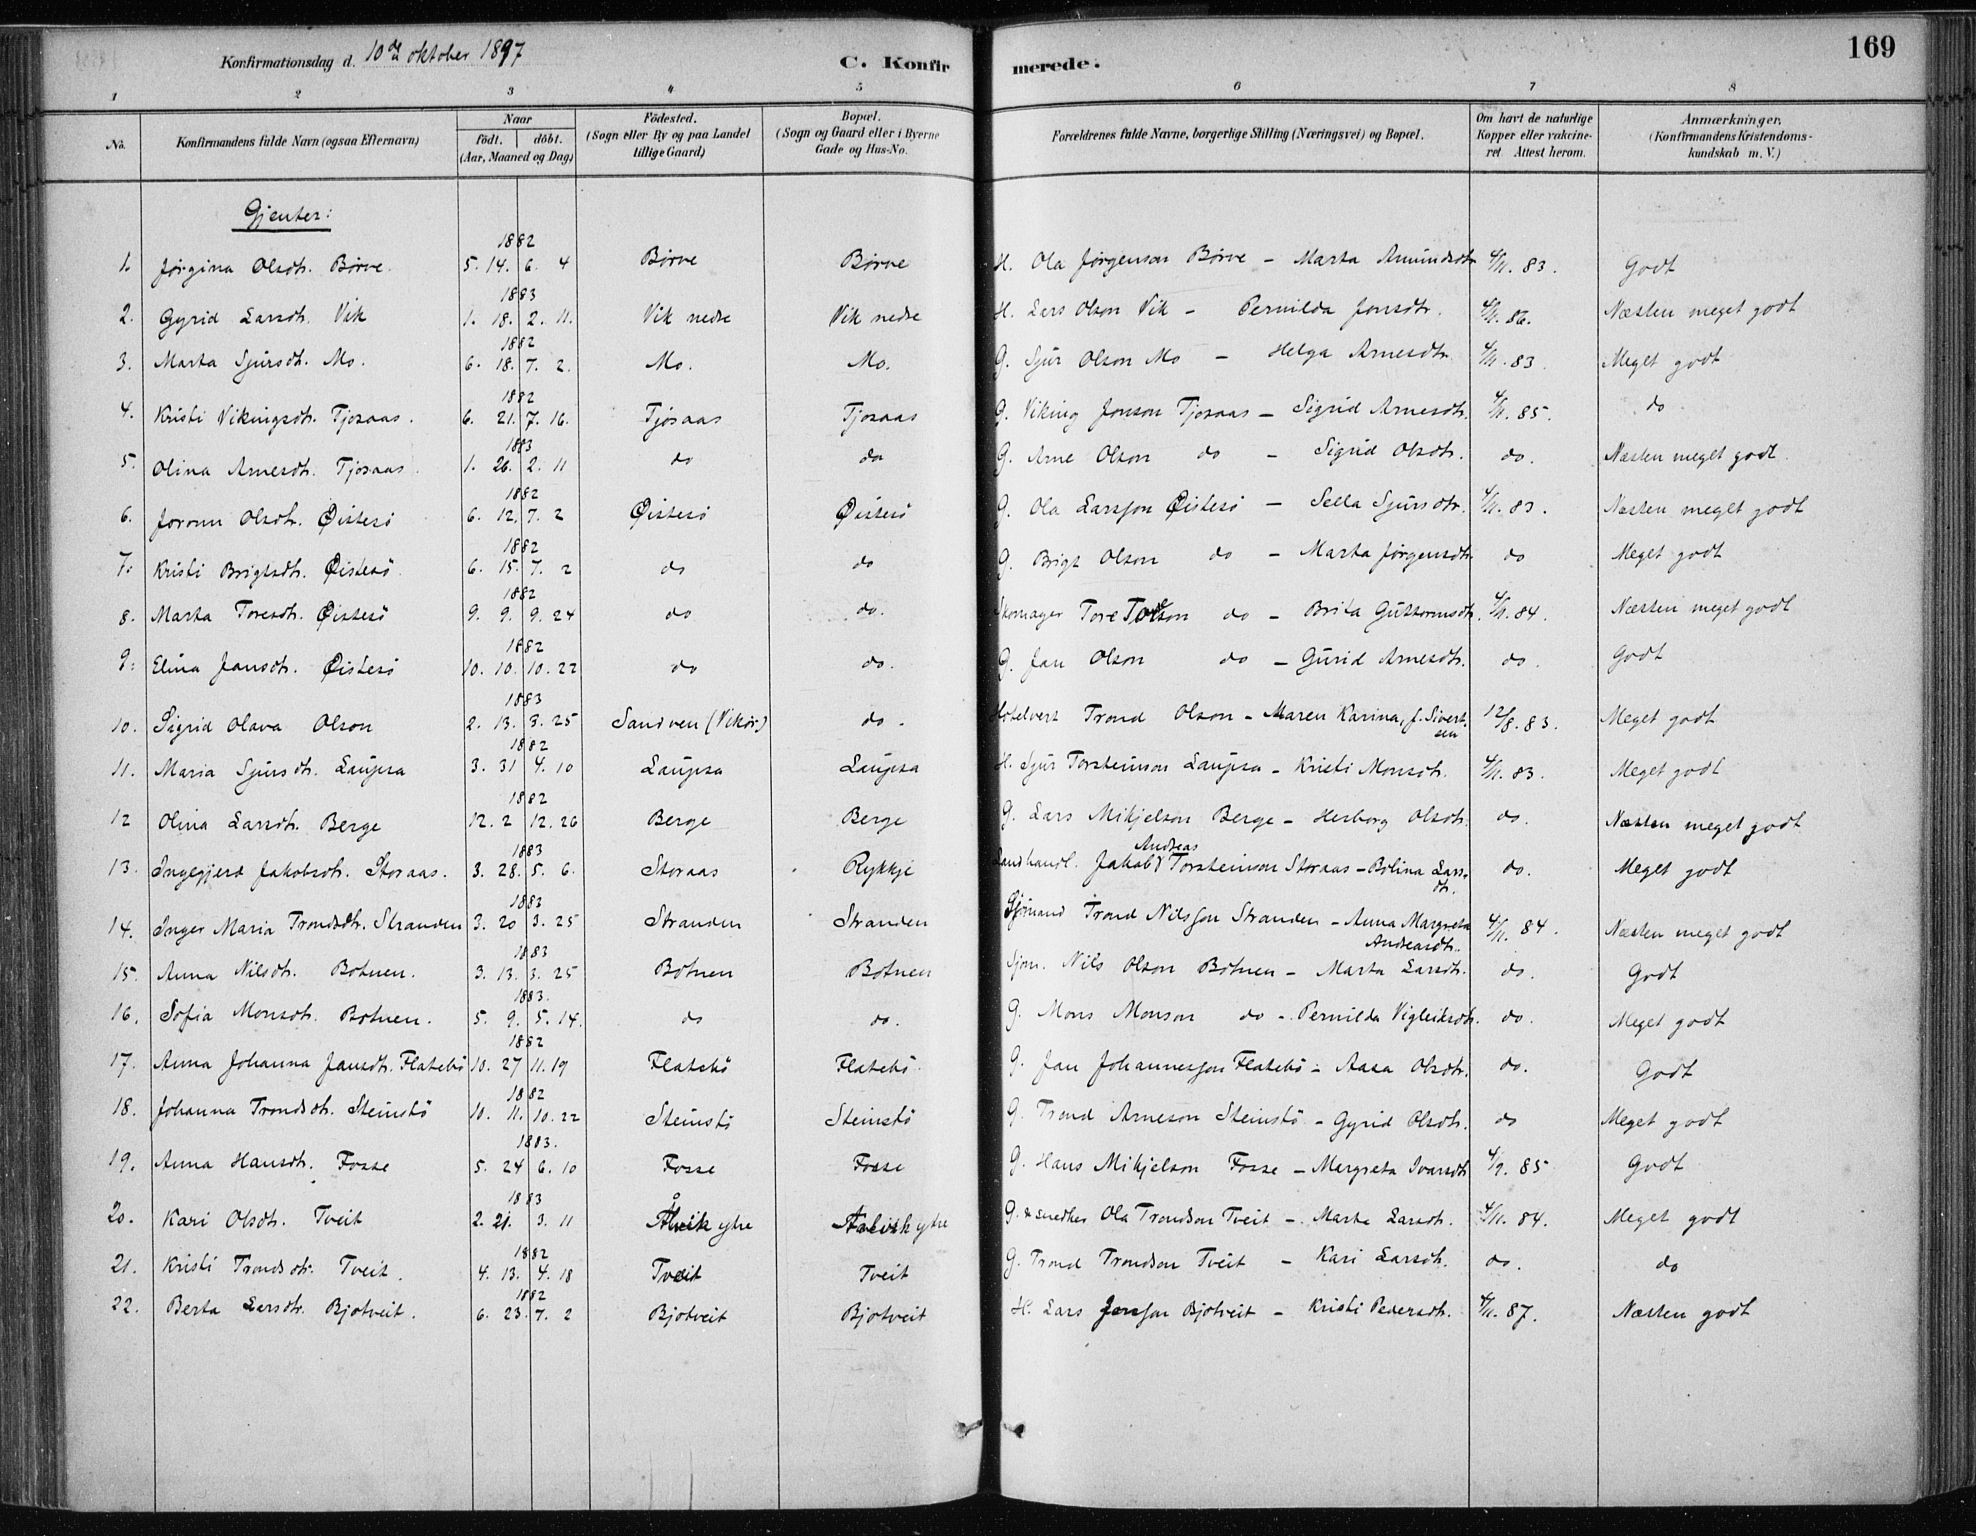 Konfirmationsdag d. 10de oktober 1897
C. Konfirmerede.
169
1 2 3 4 5 6 7 8
No.
Konfirmandens fulde Navn (ogsaa Efternavn)
Naar
födt. döbt.
(Aar, Maaned og Dag)
Födested.
(Sogn eller By og paa Landet
tillige Gaard)
Bopæl.
(Sogn og Gaard eller i Byerne
Gade og Hus-No.
Forældrenes fulde Navne, borgerlige Stilling (Næringsvei) og Bopæl.
Om havt de naturlige
Kopper eller vakcine-
ret Attest herom.
Anmærkninger.
(Konfirmandens Kristendoms-
kundskab m. V.)
Gjenter:
1882
1. Jørgina Olsdtr. Børve. 5. 14. 6. 4 Børve Børve H. Ola Jørgenson Børve - Marta Amundsdtr 4/11. 83. Godt
1883
2. Gyrid Larsdtr. Vik 1. 18. 2. 11. Vik nedre Vik nedre H. Lars Olson Vik - Pernilda Jonsdtr. 4/11. 86. Næsten meget godt
1882
3. Marta Sjursdtr. Mo. 6. 18. 7. 2. Mo. Mo. G. Sjur Olson Mo - Helga Arnesdtr. 4/11. 83. Meget godt
1882
4. Kristi Vikingsdtr. Tjosaas. 6. 21. 7. 16. Tjosaas Tjosaas G. Viking Jonson Tjosaas - Sigrid Arnesdtr. 4/11. 85. do
1883
5. Olina Arnesdtr. Tjosaas 1. 26. 2. 11 do do G. Arne Olson do - Sigrid Olsdtr. do. Næsten meget godt.
1882
6. Joronn Olsdtr. Øistesö 6. 12. 7. 2 Øistesö Øistesö G. Ola Larsson Øistesö - Sella Sjursdtr. 4/11. 83. Næsten meget godt
1882
7. Kristi Brigtsdtr. Øistesö. 6. 15. 7. 2 do do G. Brigt Olson do - Marta Jörgensdtr. do Meget godt
1882
8. Marta Toresdtr. Øistesö 9. 9. 9. 24 do do. Skomager Tore Toreson do - Brita Guttormsdtr. 4/11. 84. Næsten meget godt
1882
9. Elina Jansdtr. Øistesö 10. 10. 10. 22 do do. G. Jan Olson do - Gurid Arnesdtr. do. Godt
1883
10. Sigrid Olava Olson 2. 13. 3. 25 Sandven (Vikör) do. Hotelvert Trond Olson - Maren Karina, f. Sivert-
sen 12/8. 83. Meget godt
1882
11. Maria Sjursdtr. Laupsa 3. 31 4. 10 Laupsa Laupsa H. Sjur Torsteinson Laupsa - Kristi Monsdtr. 4/11. 83. Meget godt
1882
12 Olina Larsdtr. Berge 12. 2 12. 26 Berge Berge G. Lars Mikjelson Berge - Herborg Olsdtr. do. Næsten meget godt
1883
Andreas
13. Ingegjerd Jakobsdtr. Storaas. 3. 28. 5. 6. Storaas Rykkje Landhandl. Jakob Torsteinson Storaas - Bolina Lars-
dtr. do. Meget godt
1883
14. Inger Maria Trondsdtr. Stranden 3. 20 3. 25 Stranden Stranden Sjömand Trond Nilsson Stranden - Anna Margreta
Andreasdtr. 4/11. 84. Næsten meget godt
1883
15. Anna Nilsdtr. Botnen. 3. 13. 3. 25 Botnen Botnen Sjöm. Nils Olson Botnen - Marta Larsdtr. do. Godt
1883.
16. Sofia Monsdtr. Botnen. 5. 9. 5. 14. do do. G. Mons Monson do - Pernilda Vigleiksdtr. do. Meget godt
1882
17. Anna Johanna Jansdtr. Flatebö 10. 27 11. 19 Flatebö Flatebö G. Jan Johannesson Flatebö - Aasa Olsdtr. do. Godt
1882
18. Johanna Trondsdtr. Steinstö 10. 11. 10. 22 Steinstö Steinstö G. Trond Arneson Steinstö - Gyrid Olsdtr. do Meget godt
1883.
19. Anna Hansdtr. Fosse 5. 24 6. 10 Fosse Fosse G. Hans Mikjelson Fosse - Margreta Ivarsdtr. 4/9. 85 Godt
1883
20. Kari Olsdtr. Tveit 2. 21. 3. 11 Ålvik ytre Aalvik ytre G. & snedker Ola Trondson Tveit - Marta Larsdtr. 4/11. 84. Meget godt
1882
21. Kristi Trondsdtr. Tveit. 4. 13. 4. 18 Tveit Tveit G. Trond Trondson Tveit - Kari Larsdtr. do. do
1882
22. Berta Larsdtr. Bjotveit. 6. 23. 7. 2 Bjotveit Bjotveit H. Lars Jonsson Bjotveit - Kristi Pedersdtr. 4/11. 87. Næsten godt